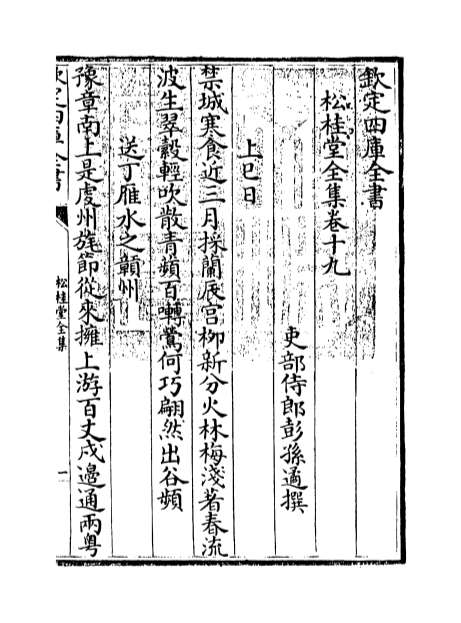 欽定四庫全書
松桂堂全集卷十九
吏部侍郎彭孫遹撰
上巳日
禁城寒食近三月採蘭辰宫柳新分火林梅淺著春流
波生翠縠輕吹散青蘋百囀鶯何巧翩然出谷頻
送丁雁水之贛州
豫章南上是虔州旄節從來擁上游百丈戍邊通兩粤
欽定四庫全書
松桂堂全集
一